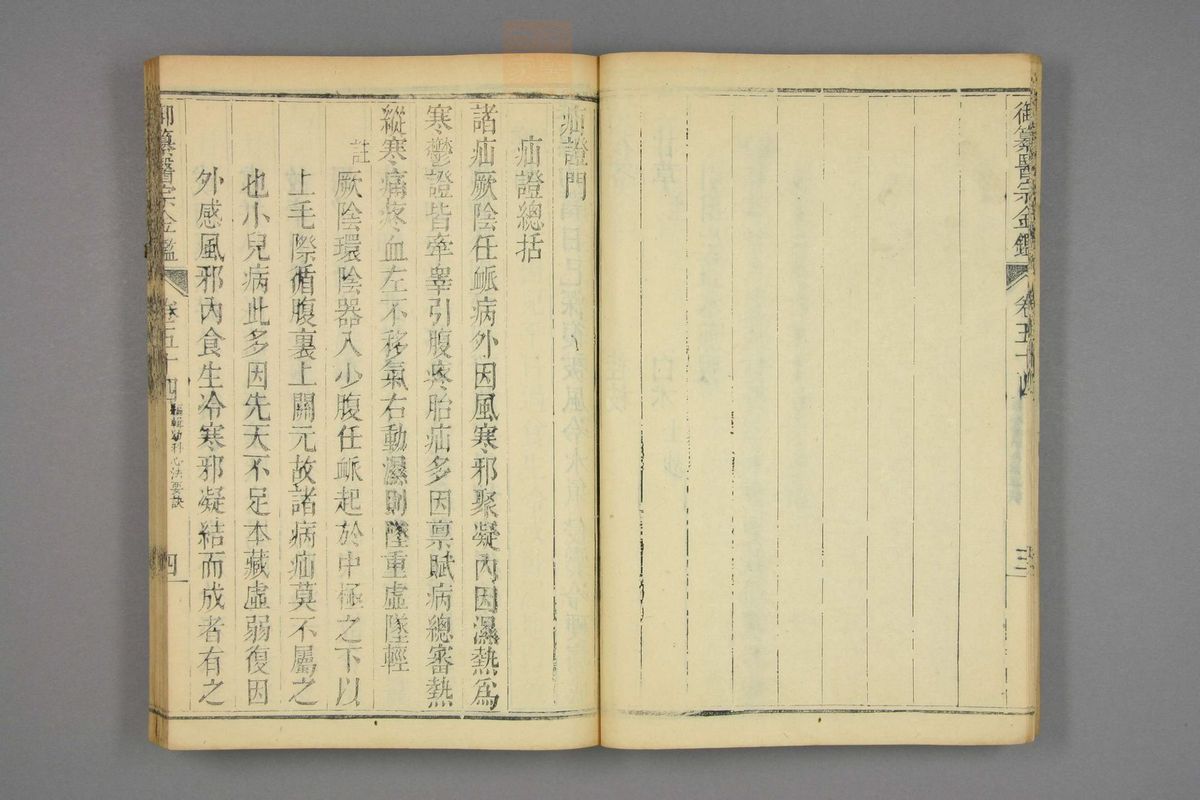 御纂醫宗金鑑 卷五十四 三
疝證門
疝證總括
諸疝厥陰任脈病外因風寒邪聚凝內因濕熱爲
寒鬱證皆牽睾引腹疼胎疝多因禀賦病總審熱
縱寒痛疼血左不移氣右動濕則墜重虛墜輕
註 厥陰環陰器入少腹任脈起於中極之下以
上毛際循腹裏上關元故諸病疝莫不屬之
也小兒病此多因先天不足本藏虛弱復因
外感風邪內食生冷寒邪凝結而成者有之
御纂醫宗金鑑 卷五十四 編輯幼科心法要訣 四